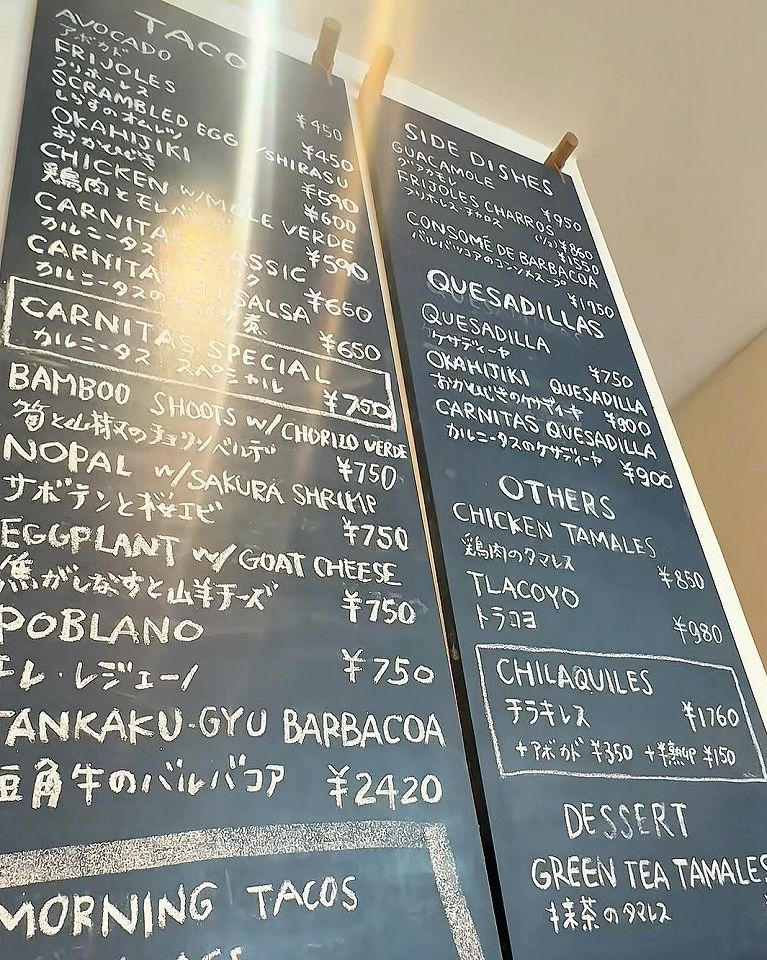 TACO
AVOCADO
アボカド ¥450
FRIJOLES
フリホーレス ¥450
SCRAMBLED EGG w/SHIRASU
しらすのオムレツ ¥590
OKAHIJIKI
おかひじき ¥600
CHICKEN w/MOLE VERDE
鶏肉とモレベルデ ¥590
CARNITAS CLASSIC
カルニータス ¥650
CARNITAS SALSA
カルニータスの ¥650
CARNITAS SPECIAL
カルニータス スペシャル ¥750
BAMBOO SHOOTS w/CHORIZO VERDE
筍と山椒のチョリソベルデ ¥750
NOPAL w/SAKURA SHRIMP
サボテンと桜エビ ¥750
EGGPLANT w/GOAT CHEESE
焦がしなすと山羊チーズ ¥750
POBLANO
チレ・レジェーノ ¥750
TANKAKU-GYU BARBACOA
短角牛のバルバコア ¥2420
MORNING TACOS
SIDE DISHES
GUACAMOLE
グアカモレ ¥950
FRIJOLES CHARROS
フリホレス・チャロス (1/2)¥860
¥1550
CONSOME DE BARBACOA
バルバッコアのコンソメスープ ¥1950
QUESADILLAS
QUESADILLA
ケサディーヤ ¥750
OKAHIJIKI QUESADILLA
おかひじきのケサディーヤ ¥900
CARNITAS QUESADILLA
カルニータスのケサディーヤ ¥900
OTHERS
CHICKEN TAMALES
鶏肉のタマレス ¥850
TLACOYO
トラコヨ ¥980
CHILAQUILES
チラキレス ¥1760
+アボカド ¥350 +半熟卵 ¥150
DESSERT
GREEN TEA TAMALES
抹茶のタマレス